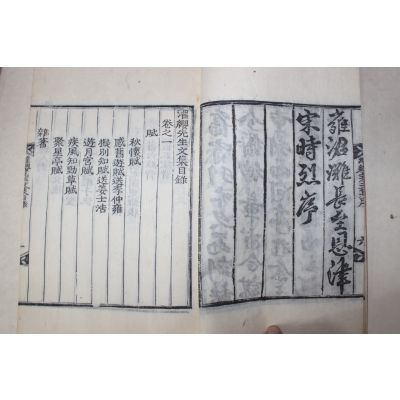 雍涒灘長至恩津
宋時烈序
濯纓先生文集目錄
卷之一
賦
秋懷賦
感舊遊賦送李仲雍
擬別知賦送姜士浩
遊月宮賦
疾風知勁草賦
聚星亭賦
雜著